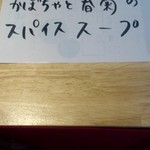 かぼちゃと春菊の
スパイス スープ